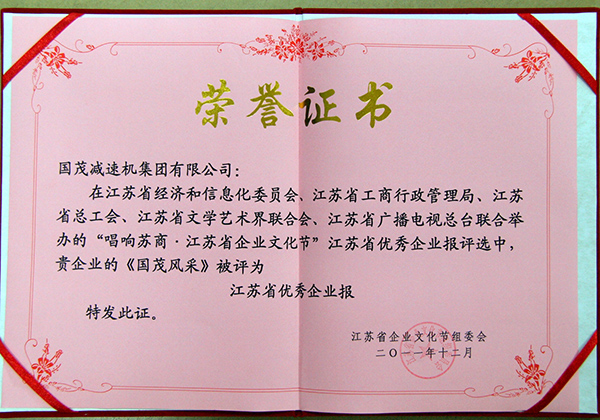 荣誉证书
国茂减速机集团有限公司：
在江苏省经济和信息化委员会、江苏省工商行政管理局、江苏
省总工会、江苏省文学艺术界联合会、江苏省广播电视总台联合举
办的“唱响苏商·江苏省企业文化节”江苏省优秀企业报评选中，
贵企业的《国茂风采》被评为
江苏省优秀企业报
特发此证。
江苏省企业文化节组委会
二〇一一年十二月